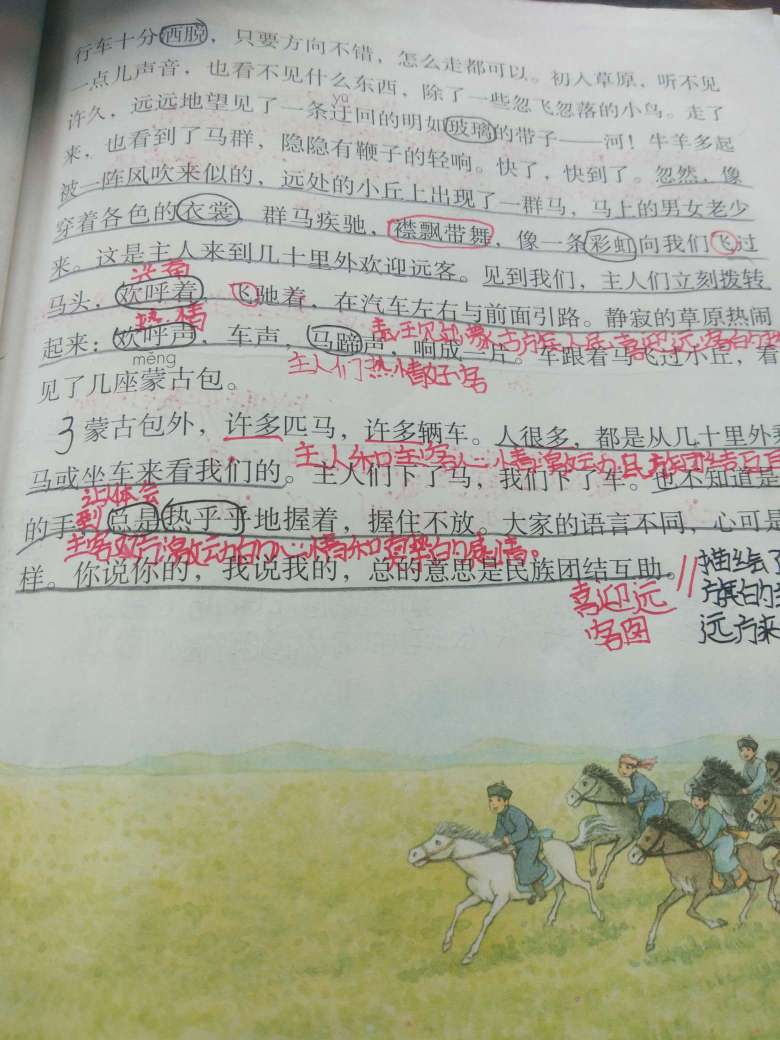 行车十分洒脱，只要方向不错，怎么走都可以。初入草原，听不见
一点儿声音，也看不见什么东西，除了一些忽飞忽落的小鸟。走了
yū
许久，远远地望见了一条迂回的明如玻璃的带子——河！牛羊多起
来，也看到了马群，隐隐有鞭子的轻响。快了，快到了。忽然，像
被一阵风吹来似的，远处的小丘上出现了一群马，马上的男女老少
穿着各色的衣裳，群马疾驰，襟飘带舞，像一条彩虹向我们飞过
来。这是主人来到几十里外欢迎远客。见到我们，主人们立刻拨转
兴奋
马头，欢呼着，飞驰着，在汽车左右与前面引路。静寂的草原热闹
热情
起来：欢呼声，车声，马蹄声，响成一片。车跟着马飞过小丘，看
表现 蒙古族人民喜迎远客的
měng
主人们热情好客
见了几座蒙古包。
3 蒙古包外，许多匹马，许多辆车。人很多，都是从几十里外乘
主人和主客心情激动 民族团结
马或坐车来看我们的。主人们下了马，我们下了车。也不知道是
让体会
到
的手，总是热乎乎地握着，握住不放。大家的语言不同，心可是
主客双方激动的心情和真挚的感情。
样。你说你的，我说我的，总的意思是民族团结互助。
喜迎远
客图
描绘了
族的
远方来